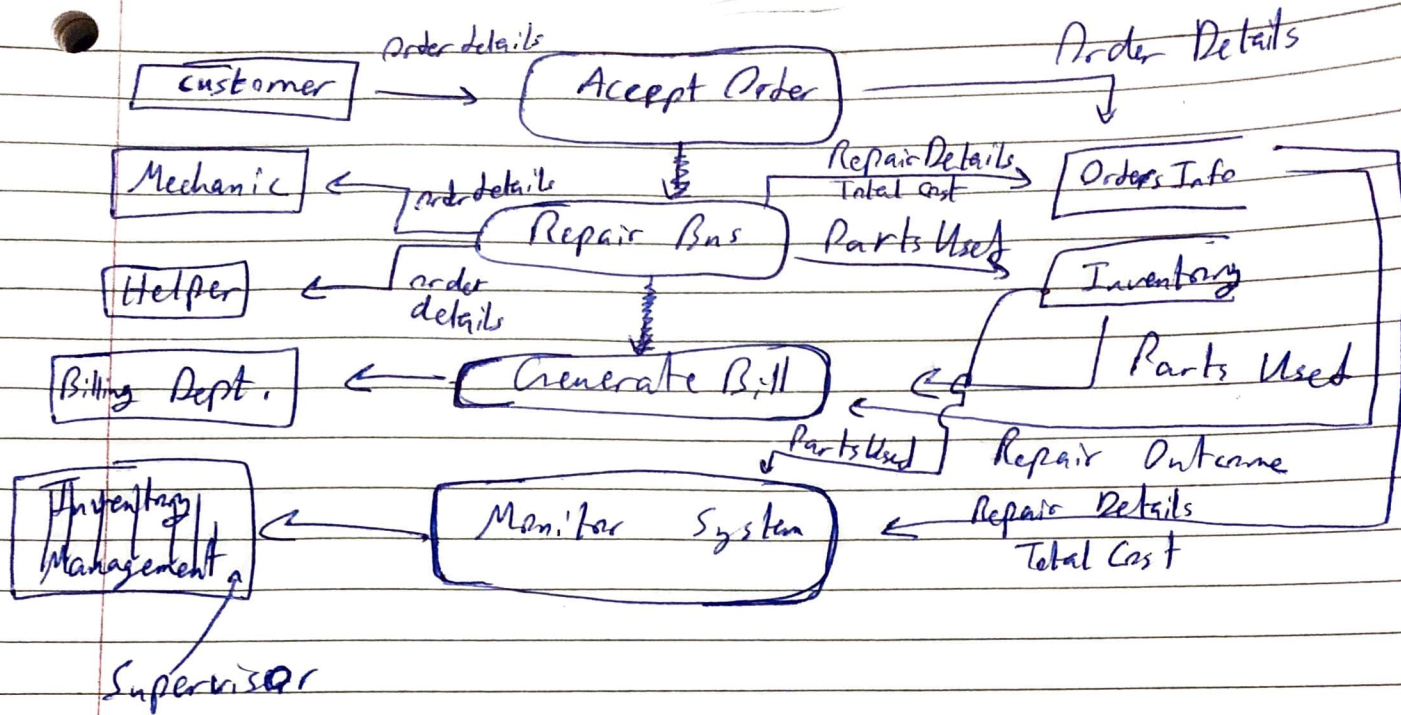 order details
Order Details
customer
Accept Order
Mechanic
order details
Repair Details
Total Cost
Orders Info
Repair Bus
Parts Used
Inventory
Helper
order
details
Billing Dept.
Generate Bill
Parts Used
Parts Used
Repair Outcome
Inventory
Management
Monitor System
Repair Details
Total Cost
Supervisor